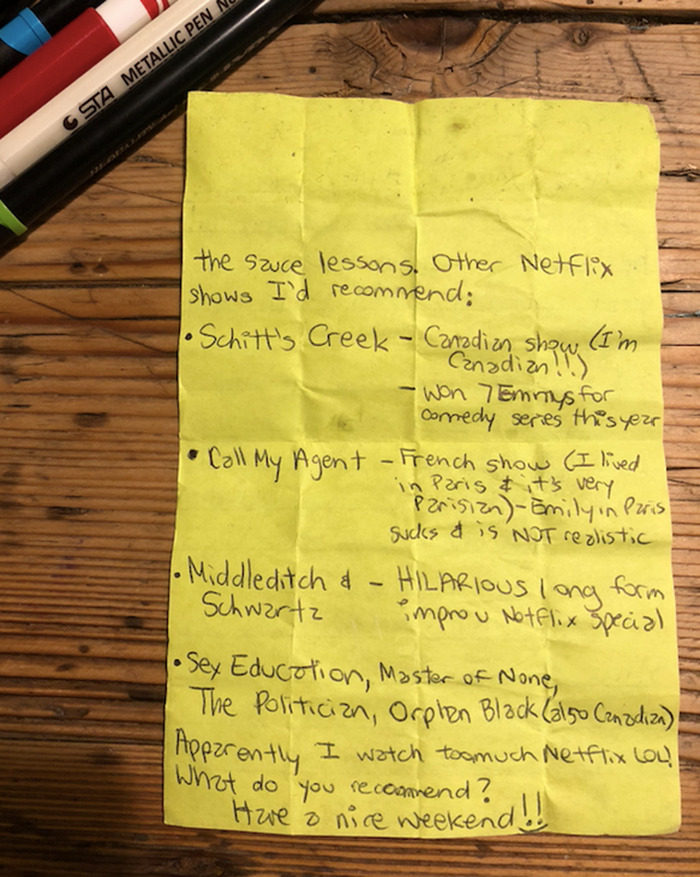 STA METALLIC PEN No
the sauce lessons. Other Netflix
shows I'd recommend:
• Schitt's Creek - Canadian show (I'm
Canadian!!)
- won 7 Emmys for
comedy series this year
• Call My Agent - French show (I lived
in Paris & it's very
Parisian) - Emily in Paris
sucks & is NOT realistic
• Middleditch & - HILARIOUS long form
Schwartz improv Netflix special
• Sex Education, Master of None,
The Politician, Orphan Black (also Canadian)
Apparently I watch too much Netflix LOL!
What do you recommend?
Have a nice weekend!!